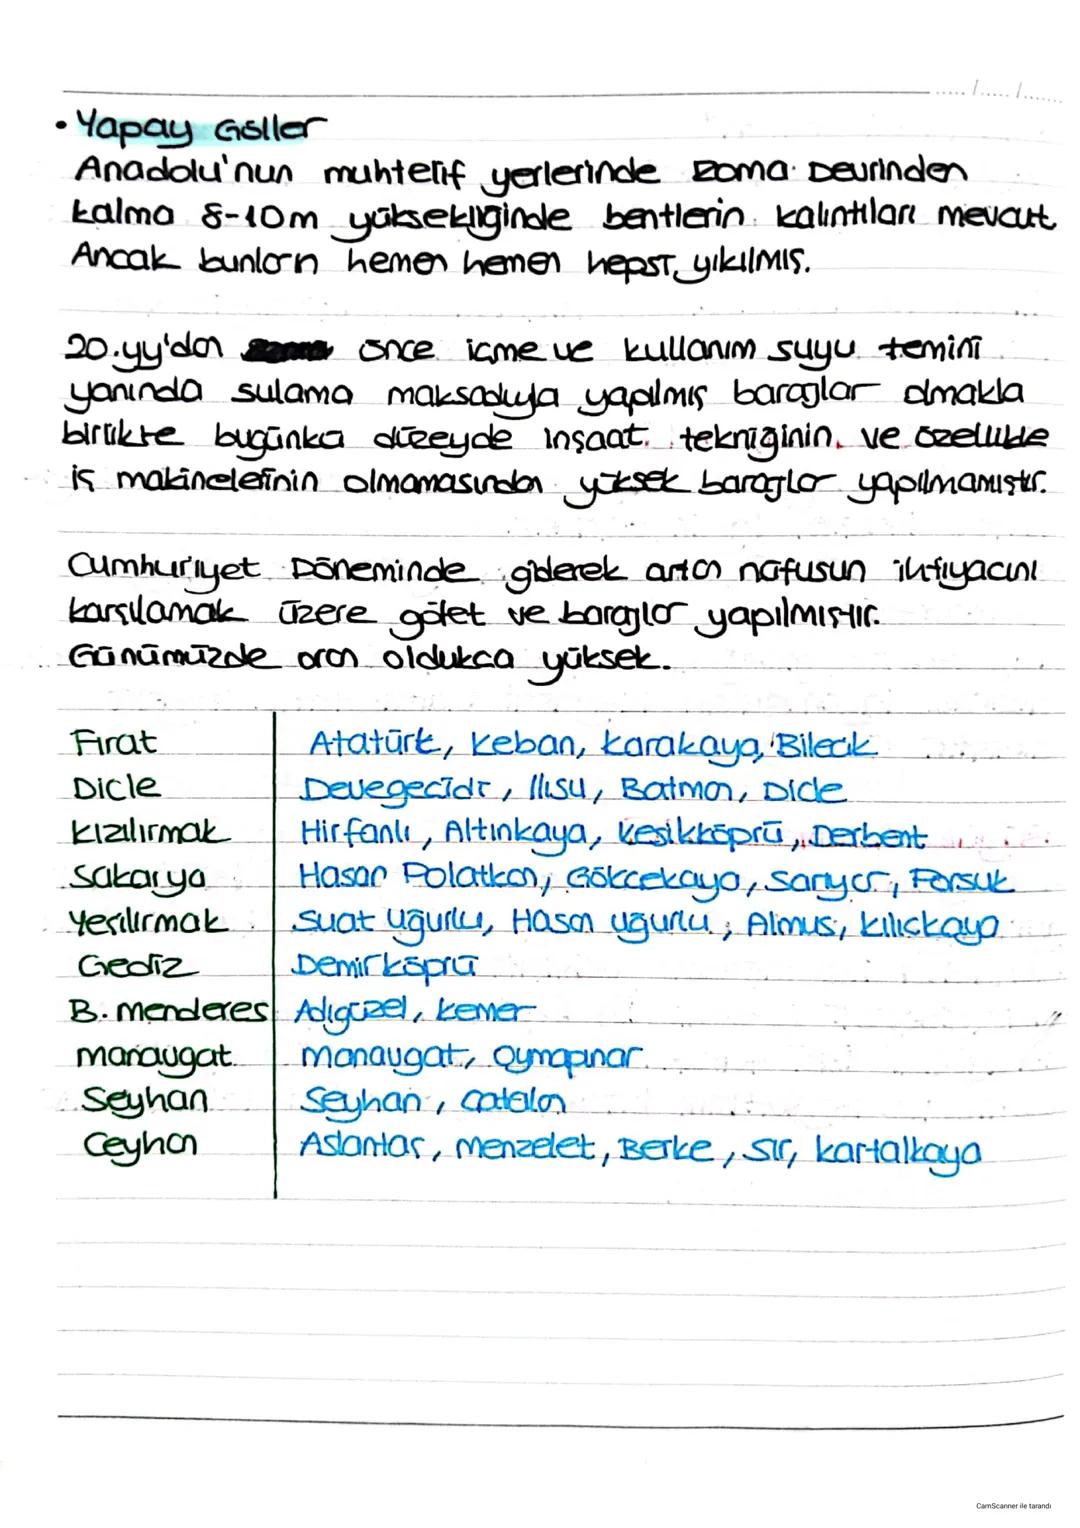 ..... /..... /.......
• Yapay Göller
Anadolu'nun muhtelif yerlerinde Roma Devrinden
kalma 8-10m yüksekliğinde bentlerin kalıntıları mevcut.
Ancak bunların hemen hemen hepsi yıkılmış.
20.yy'dan önce içme ve kullanım suyu temini
yanında sulama maksadıyla yapılmış barajlar olmakla
birlikte bugünkü düzeyde inşaat tekniğinin ve özellikle
iş makinelerinin olmamasından yüksek barajlar yapılmamıştır.
Cumhuriyet Döneminde giderek artan nüfusun ihtiyacını
karşılamak üzere gölet ve barajlar yapılmıştır.
Günümüzde oran oldukça yüksek.
Fırat Atatürk, Keban, Karakaya, Bilecik
Dicle Devegecidi, Ilısu, Batman, Dicle
Kızılırmak Hirfanlı, Altınkaya, Kesikköprü, Derbent
Sakarya Hasan Polatkan, Gökçekaya, Sarıyar, Porsuk
Yeşilırmak Suat Uğurlu, Hasan Uğurlu, Almus, Kılıçkaya
Gediz Demirköprü
B. menderes Adıgüzel, Kemer
Manavgat Manavgat, Oymapınar
Seyhan Seyhan, Çatalan
Ceyhan Aslantaş, Menzelet, Berke, Sır, Kartalkaya
CamScanner ile tarandı